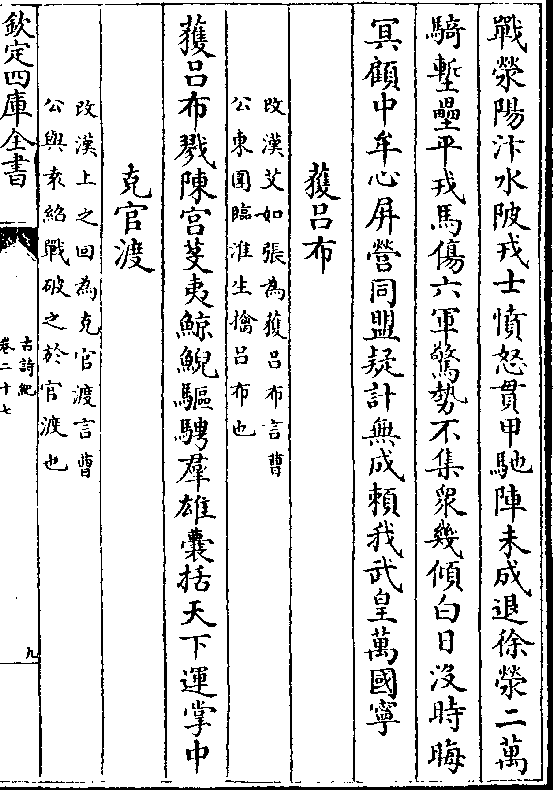 戰滎陽汴水陂戎士憤怒貫甲馳陣未成退徐滎二萬
騎塹壘平戎馬傷六軍驚勢不集衆幾傾白日沒時晦
冥顧中牟心屏營同盟疑計無成賴我武皇萬國寧
獲呂布
改漢艾如張為獲呂布言曹
公東圍臨淮生擒呂布也
獲呂布戮陳宫芟夷鯨鯢驅騁羣雄囊括天下運掌中
克官渡
改漢上之回為克官渡言曹
公與袁紹戰破之於官渡也
欽定四庫全書
古詩紀
卷二十七
九